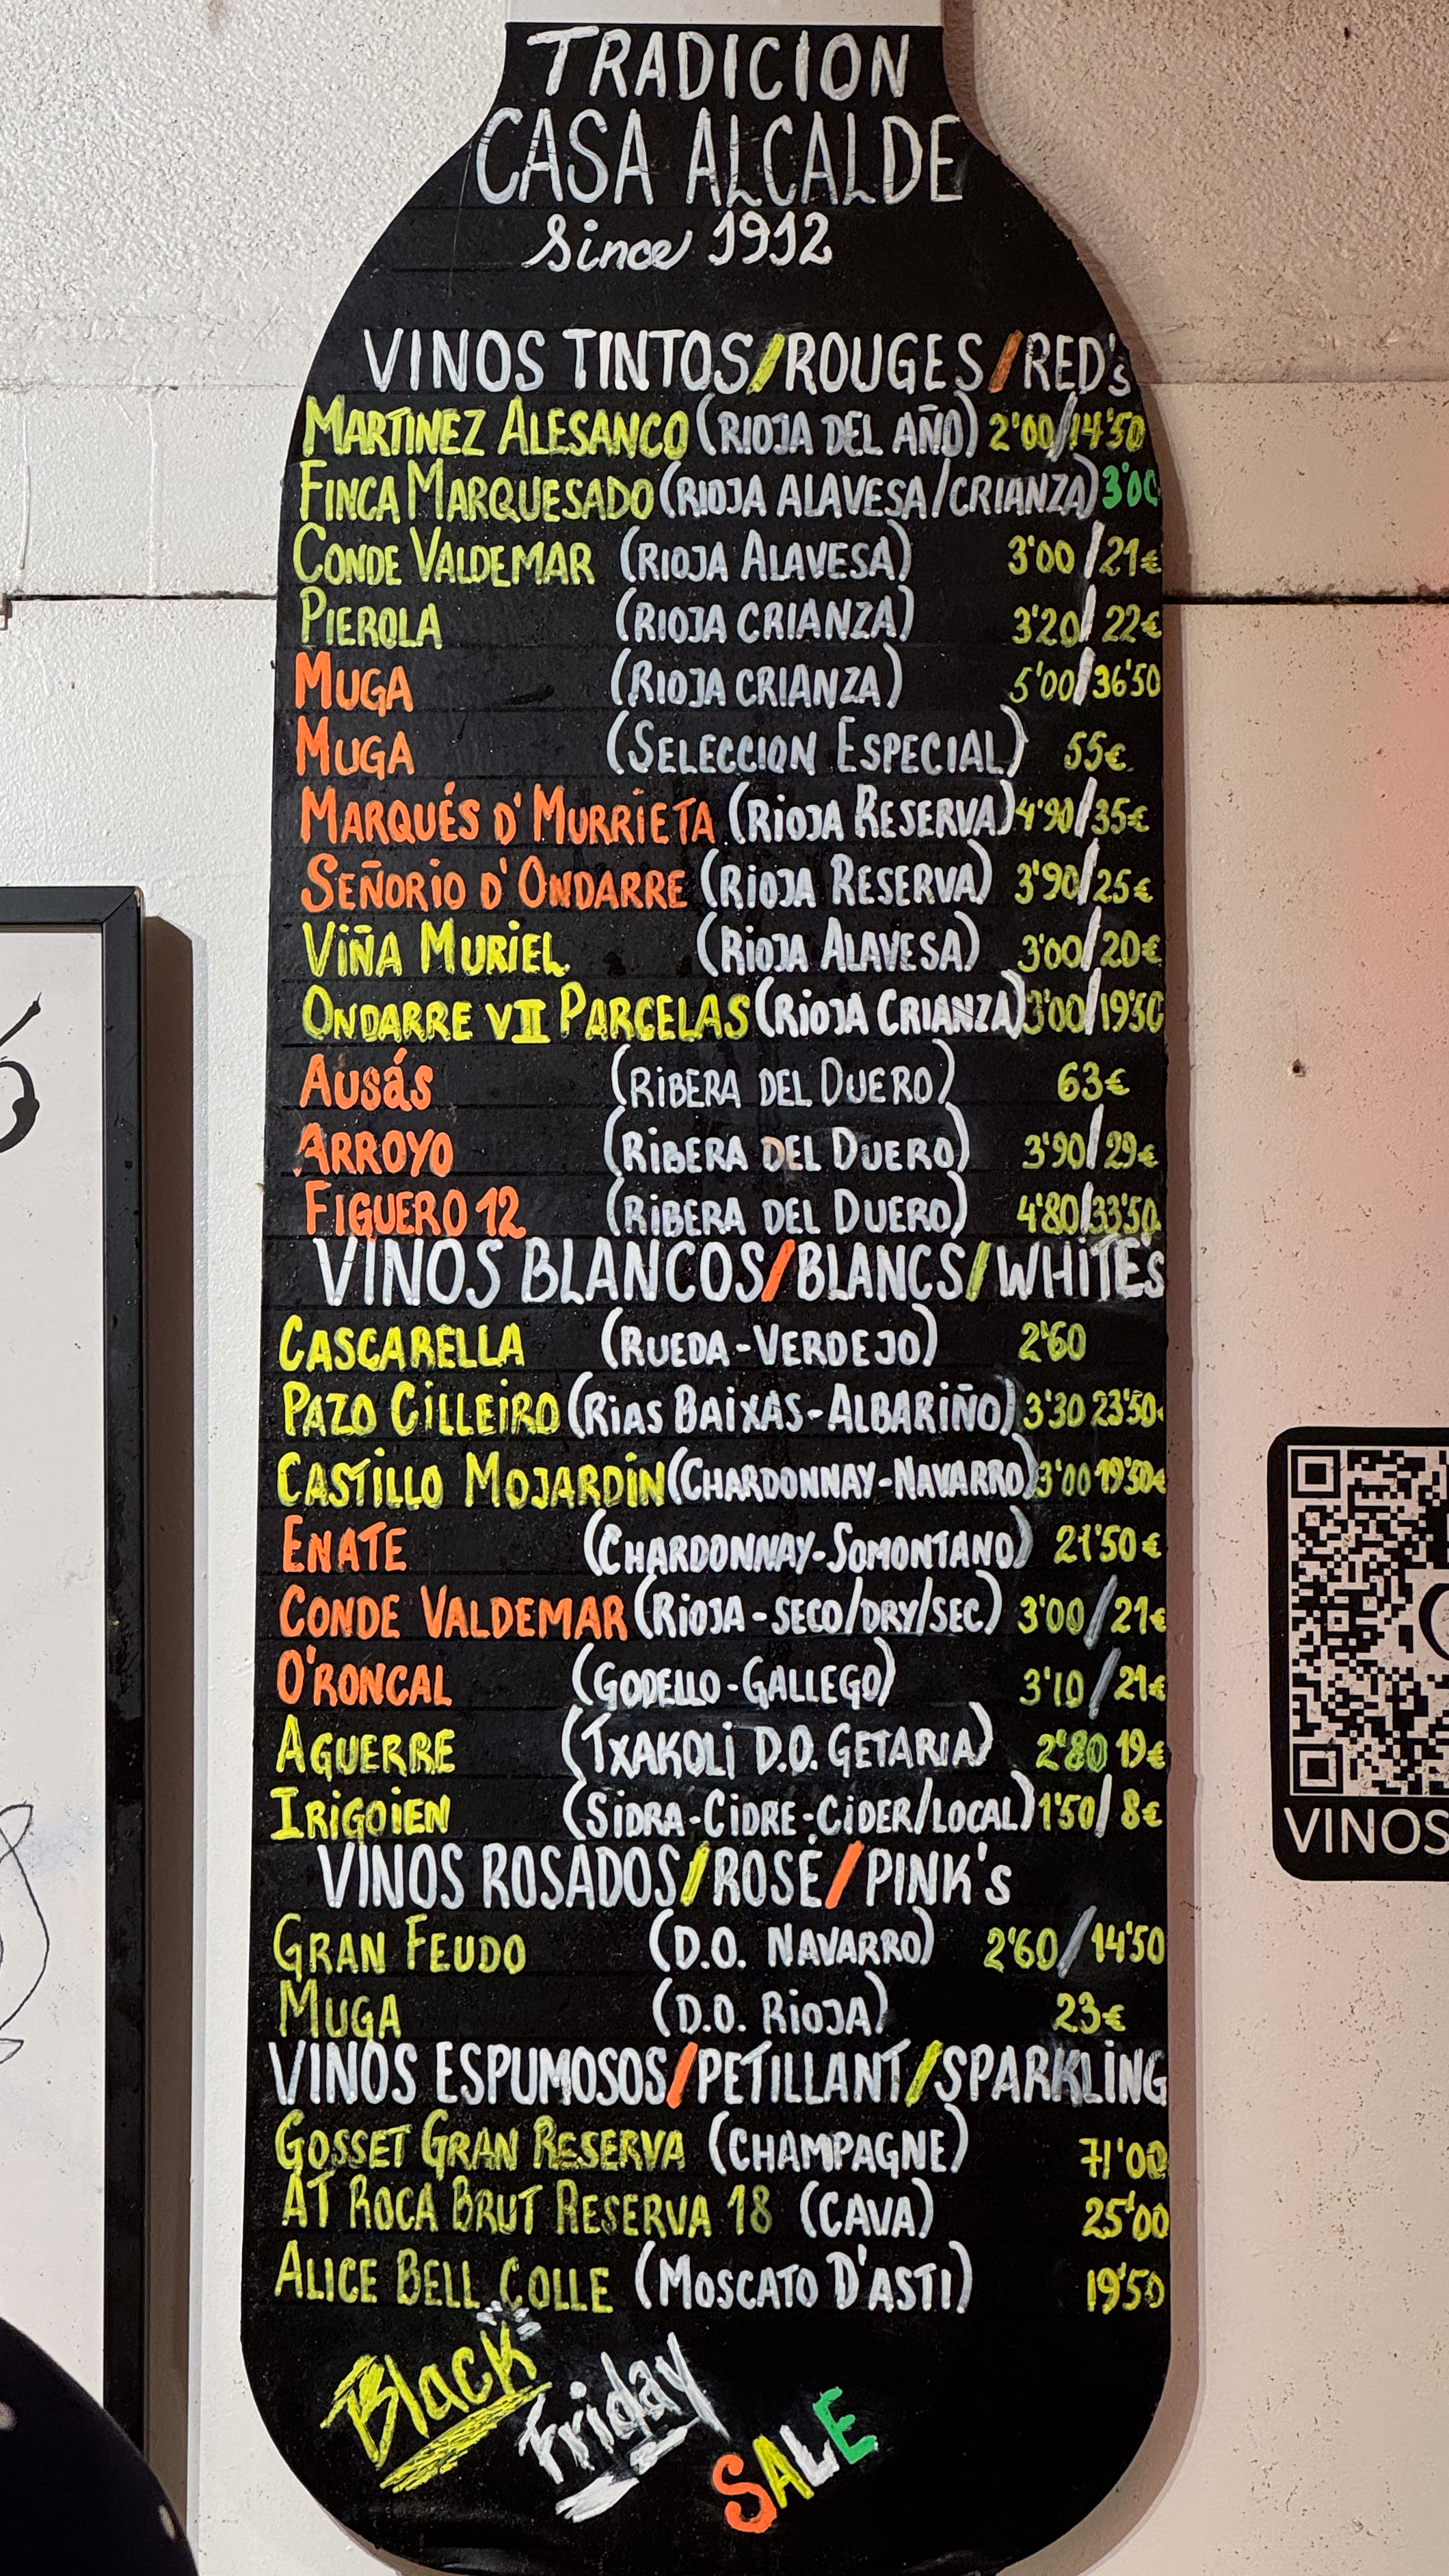 TRADICION
CASA ALCALDE
Since 1912
VINOS TINTOS/ROUGES/RED's
MARTINEZ ALESANCO (RIOJA DEL AÑO) 2'00/14'50
FINCA MARQUESADO (RIOJA ALAVESA/CRIANZA) 3'00
CONDE VALDEMAR (RIOJA ALAVESA) 3'00/21€
PIEROLA (RIOJA CRIANZA) 3'20/22€
MUGA (RIOJA CRIANZA) 5'00/36'50
MUGA (SELECCION ESPECIAL) 55€
MARQUÉS D'MURRIETA (RIOJA RESERVA) 4'90/35€
SEÑORIO D'ONDARRE (RIOJA RESERVA) 3'90/25€
VIÑA MURIEL (RIOJA ALAVESA) 3'00/20€
ONDARRE VII PARCELAS (RIOJA CRIANZA) 3'00/19'50
AUSÁS (RIBERA DEL DUERO) 63€
ARROYO (RIBERA DEL DUERO) 3'90/29€
FIGUERO 12 (RIBERA DEL DUERO) 4'80/33'50
VINOS BLANCOS/BLANCS/WHITE'S
CASCARELLA (RUEDA-VERDEJO) 2'60
PAZO CILLEIRO (RIAS BAIXAS-ALBARIÑO) 3'30 23'50€
CASTILLO MOJARDÍN (CHARDONNAY-NAVARRO) 3'00 19'50€
ENATE (CHARDONNAY-SOMONTANO) 21'50€
CONDE VALDEMAR (RIOJA-SECO/DRY/SEC) 3'00/21€
O'RONCAL (GODELLO-GALLEGO) 3'10/21€
AGUERRE (TXAKOLI D.O. GETARIA) 2'80 19€
IRIGOIEN (SIDRA-CIDRE-CIDER/LOCAL) 1'50/8€
VINOS ROSADOS/ROSÉ/PINK's
GRAN FEUDO (D.O. NAVARRO) 2'60/14'50
MUGA (D.O. RIOJA) 23€
VINOS ESPUMOSOS/PETILLANT/SPARKLING
GOSSET GRAN RESERVA (CHAMPAGNE) 71'00
AT ROCA BRUT RESERVA 18 (CAVA) 25'00
ALICE BELL COLLE (MOSCATO D'ASTI) 19'50
Black
Friday
SALE
VINOS